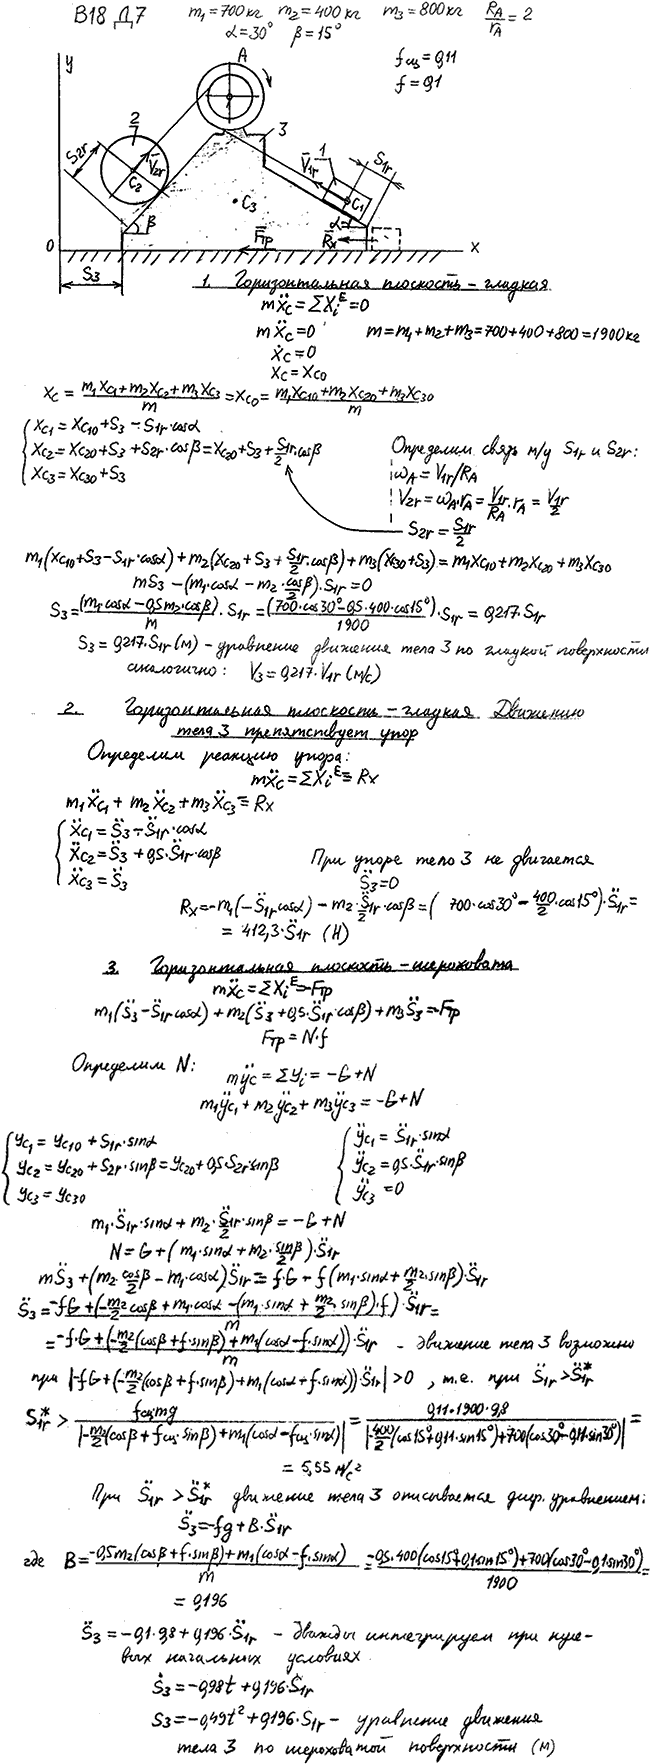 В18 Д7 m₁=700кг m₂=400кг m₃=800кг R_A/r_A=2
α=30° β=15°
f_сц=0,11
f=0,1
y
A
2
3
1
S₂r
V̄₂r
C₂
V̄₁r
S₁r
C₁
C₃
β
α
F̄тр
R̄x
0
x
S₃
1. Горизонтальная плоскость - гладкая
mẍc=ΣXiᴱ=0
mẍc=0 m=m₁+m₂+m₃=700+400+800=1900кг
ẋc=0
xc=xc0
xc=(m₁xc₁+m₂xc₂+m₃xc₃)/m=xc0=(m₁xc10+m₂xc20+m₃xc30)/m
{xc₁=xc10+S₃-S₁r·cosα
xc₂=xc20+S₃+S₂r·cosβ=xc20+S₃+S₁r/2·cosβ
xc₃=xc30+S₃
Определим связь м/у S₁r и S₂r:
ω_A=V₁r/R_A
V₂r=ω_A·r_A=V₁r/R_A·r_A=V₁r/2
S₂r=S₁r/2
m₁(xc10+S₃-S₁r·cosα)+m₂(xc20+S₃+S₁r/2·cosβ)+m₃(xc30+S₃)=m₁xc10+m₂xc20+m₃xc30
mS₃-(m₁·cosα-m₂·cosβ/2)·S₁r=0
S₃=(m₁cosα-0,5m₂·cosβ)/m·S₁r=(700·cos30°-0,5·400·cos15°)/1900·S₁r=0,217·S₁r
S₃=0,217·S₁r (м) - уравнение движение тела 3 по гладкой поверхности
аналогично: V₃=0,217·V₁r (м/с)
2. Горизонтальная плоскость - гладкая. Движению
тела 3 препятствует упор
Определим реакцию упора:
mẍc=ΣXiᴱ=-Rx
m₁ẍc₁+m₂ẍc₂+m₃ẍc₃=-Rx
{ẍc₁=S̈₃-S̈₁r·cosα
ẍc₂=S̈₃+0,5·S̈₁r·cosβ
ẍc₃=S̈₃
При упоре тело 3 не двигается
S̈₃=0
Rx=-m₁(-S̈₁r cosα)-m₂·S̈₁r/2·cosβ=(700·cos30°-400/2·cos15°)·S̈₁r=
=412,3·S̈₁r (Н)
3. Горизонтальная плоскость - шероховата
mẍc=ΣXiᴱ=-Fтр
m₁(S̈₃-S̈₁r cosα)+m₂(S̈₃+0,5·S̈₁r·cosβ)+m₃S̈₃=-Fтр
Fтр=N·f
Определим N: mÿc=Σyi=-G+N
m₁ÿc₁+m₂ÿc₂+m₃ÿc₃=-G+N
{yc₁=yc10+S₁r·sinα
yc₂=yc20+S₂r·sinβ=yc20+0,5·S₂r·sinβ
yc₃=yc30
{ÿc₁=S̈₁r·sinα
ÿc₂=0,5·S̈₁r·sinβ
ÿc₃=0
m₁·S̈₁r·sinα+m₂·S̈₁r/2·sinβ=-G+N
N=G+(m₁sinα+m₂·sinβ/2)·S̈₁r
mS̈₃+(m₂cosβ/2-m₁·cosα)S̈₁r=-f·G-f(m₁·sinα+m₂/2·sinβ)·S̈₁r
S̈₃=(-fG+(-m₂/2cosβ+m₁·cosα-(m₁·sinα+m₂/2·sinβ)·f)·S̈₁r)/m=
=(-f·G+(-m₂/2(cosβ+f·sinβ)+m₁(cosα-f·sinα))·S̈₁r)/m - движение тела 3 возможно
при |-fG+(-m₂/2(cosβ+f·sinβ)+m₁(cosα-f·sinα))·S̈₁r|>0, т.е. при S̈₁r>S̈₁r*
S̈₁r*>f_сц mg/|-m₂/2(cosβ+f_сц·sinβ)+m₁(cosα-f_сц sinα)|=0,11·1900·9,8/|-400/2(cos15°+0,11·sin15°)+700(cos30°-0,11·sin30°)|=
=5,55 м/с²
При S̈₁r>S̈₁r* движение тела 3 описывается диф. уравнением:
S̈₃=-fg+B·S̈₁r
где B=(-0,5m₂(cosβ+f·sinβ)+m₁(cosα-f·sinα))/m=(-0,5·400(cos15°+0,1sin15°)+700(cos30°-0,1sin30°))/1900=
=0,196
S̈₃=-0,1·9,8+0,196·S̈₁r - дважды интегрируем при нуле-
вых начальных условиях.
Ṡ₃=-0,98t+0,196·Ṡ₁r
S₃=-0,49t²+0,196·S₁r - уравнение движения
тела 3 по шероховатой поверхности (м)